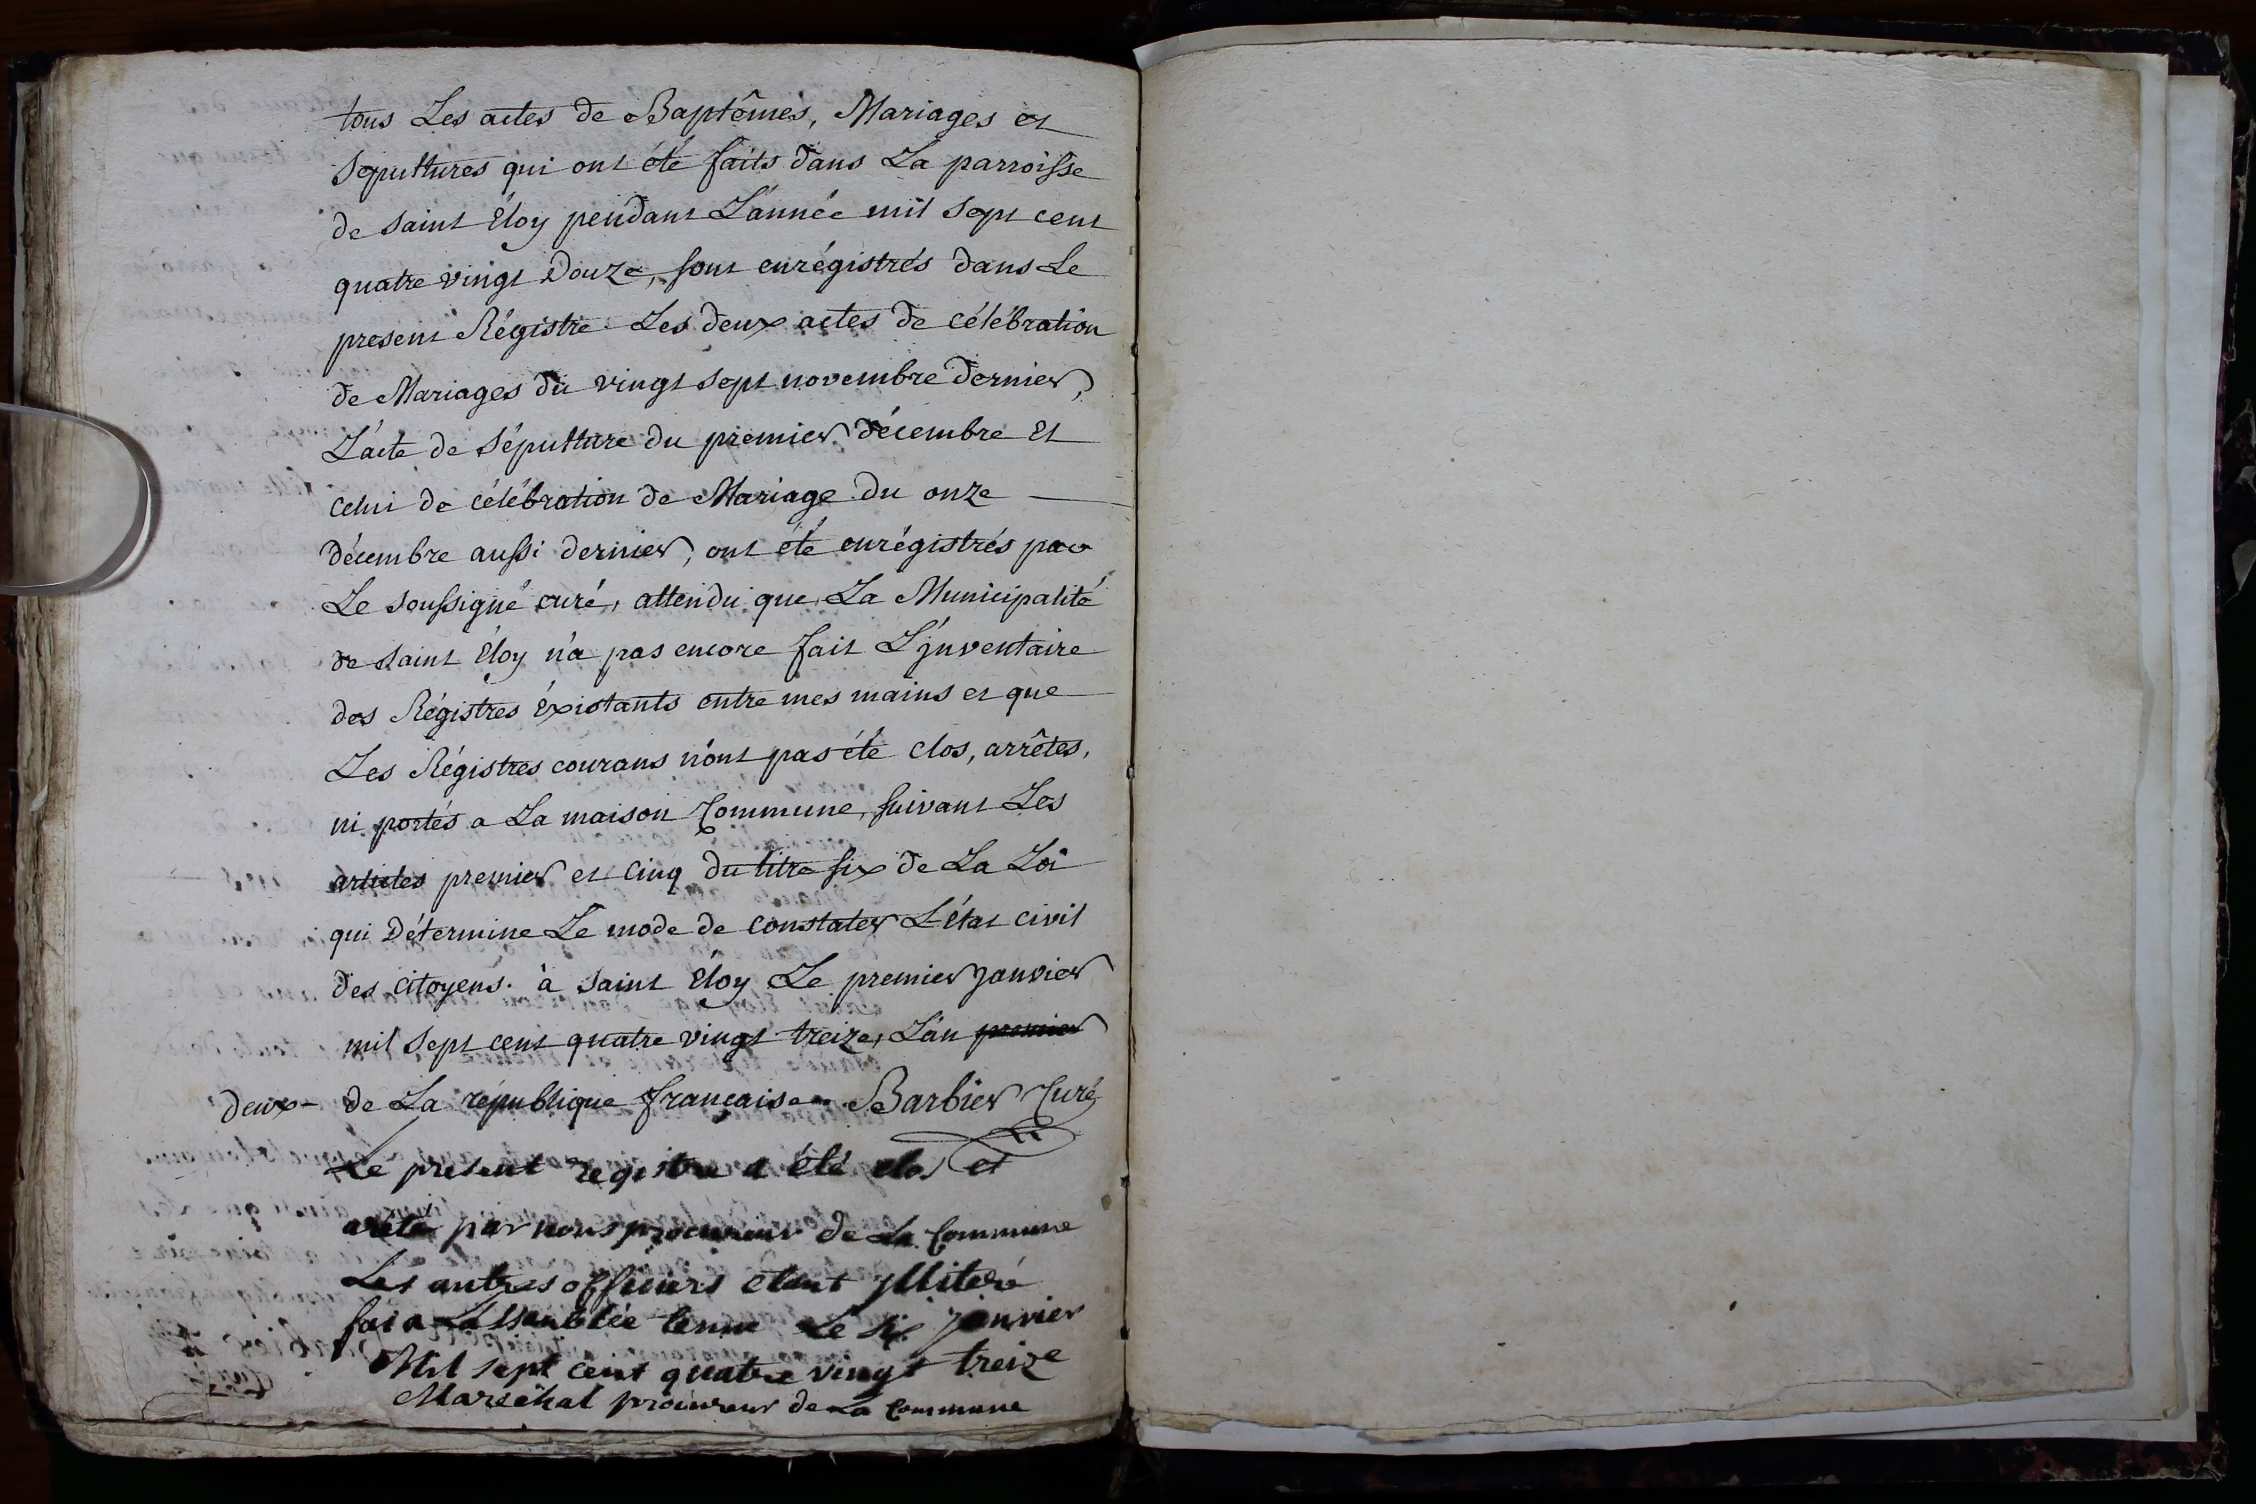 tous Les actes de Baptêmes, Mariages et
Sépultures qui ont été faits dans La parroisse
de saint Éloy pendant L'année mil sept cent
quatre vingt Douze, sont enrégistrés dans Le
present Régistre. Les deux actes de célébration
de Mariages du vingt sept novembre dernier,
L'acte de Sépulture du premier décembre Et
celui de célébration de Mariage du onze
Décembre aussi dernier, ont été enrégistrés par
Le soussigné curé, attendu que La Municipalité
de saint Éloy n'a pas encore fait L'jnventaire
des Régistres éxistants entre mes mains et que
Les Régistres courans n'ont pas été clos, arrêtés,
ni portés a La maison Commune, suivant Les
articles premier et cinq du titre six de La Loi
qui Détermine Le mode de constater L'état civil
des citoyens. à saint Éloy Le premier janvier
mil sept cent quatre vingt treize, L'an premier
deux - de La république française. Barbier Curé
Le present registre a été clos et
areté par nous procureur de La Commune
Les autres officiers etant jlliteré
fai a Lassemblée tenue Le six janvier
Mil sept cent quatre vingt treize
Maréchal procureur de La Commune